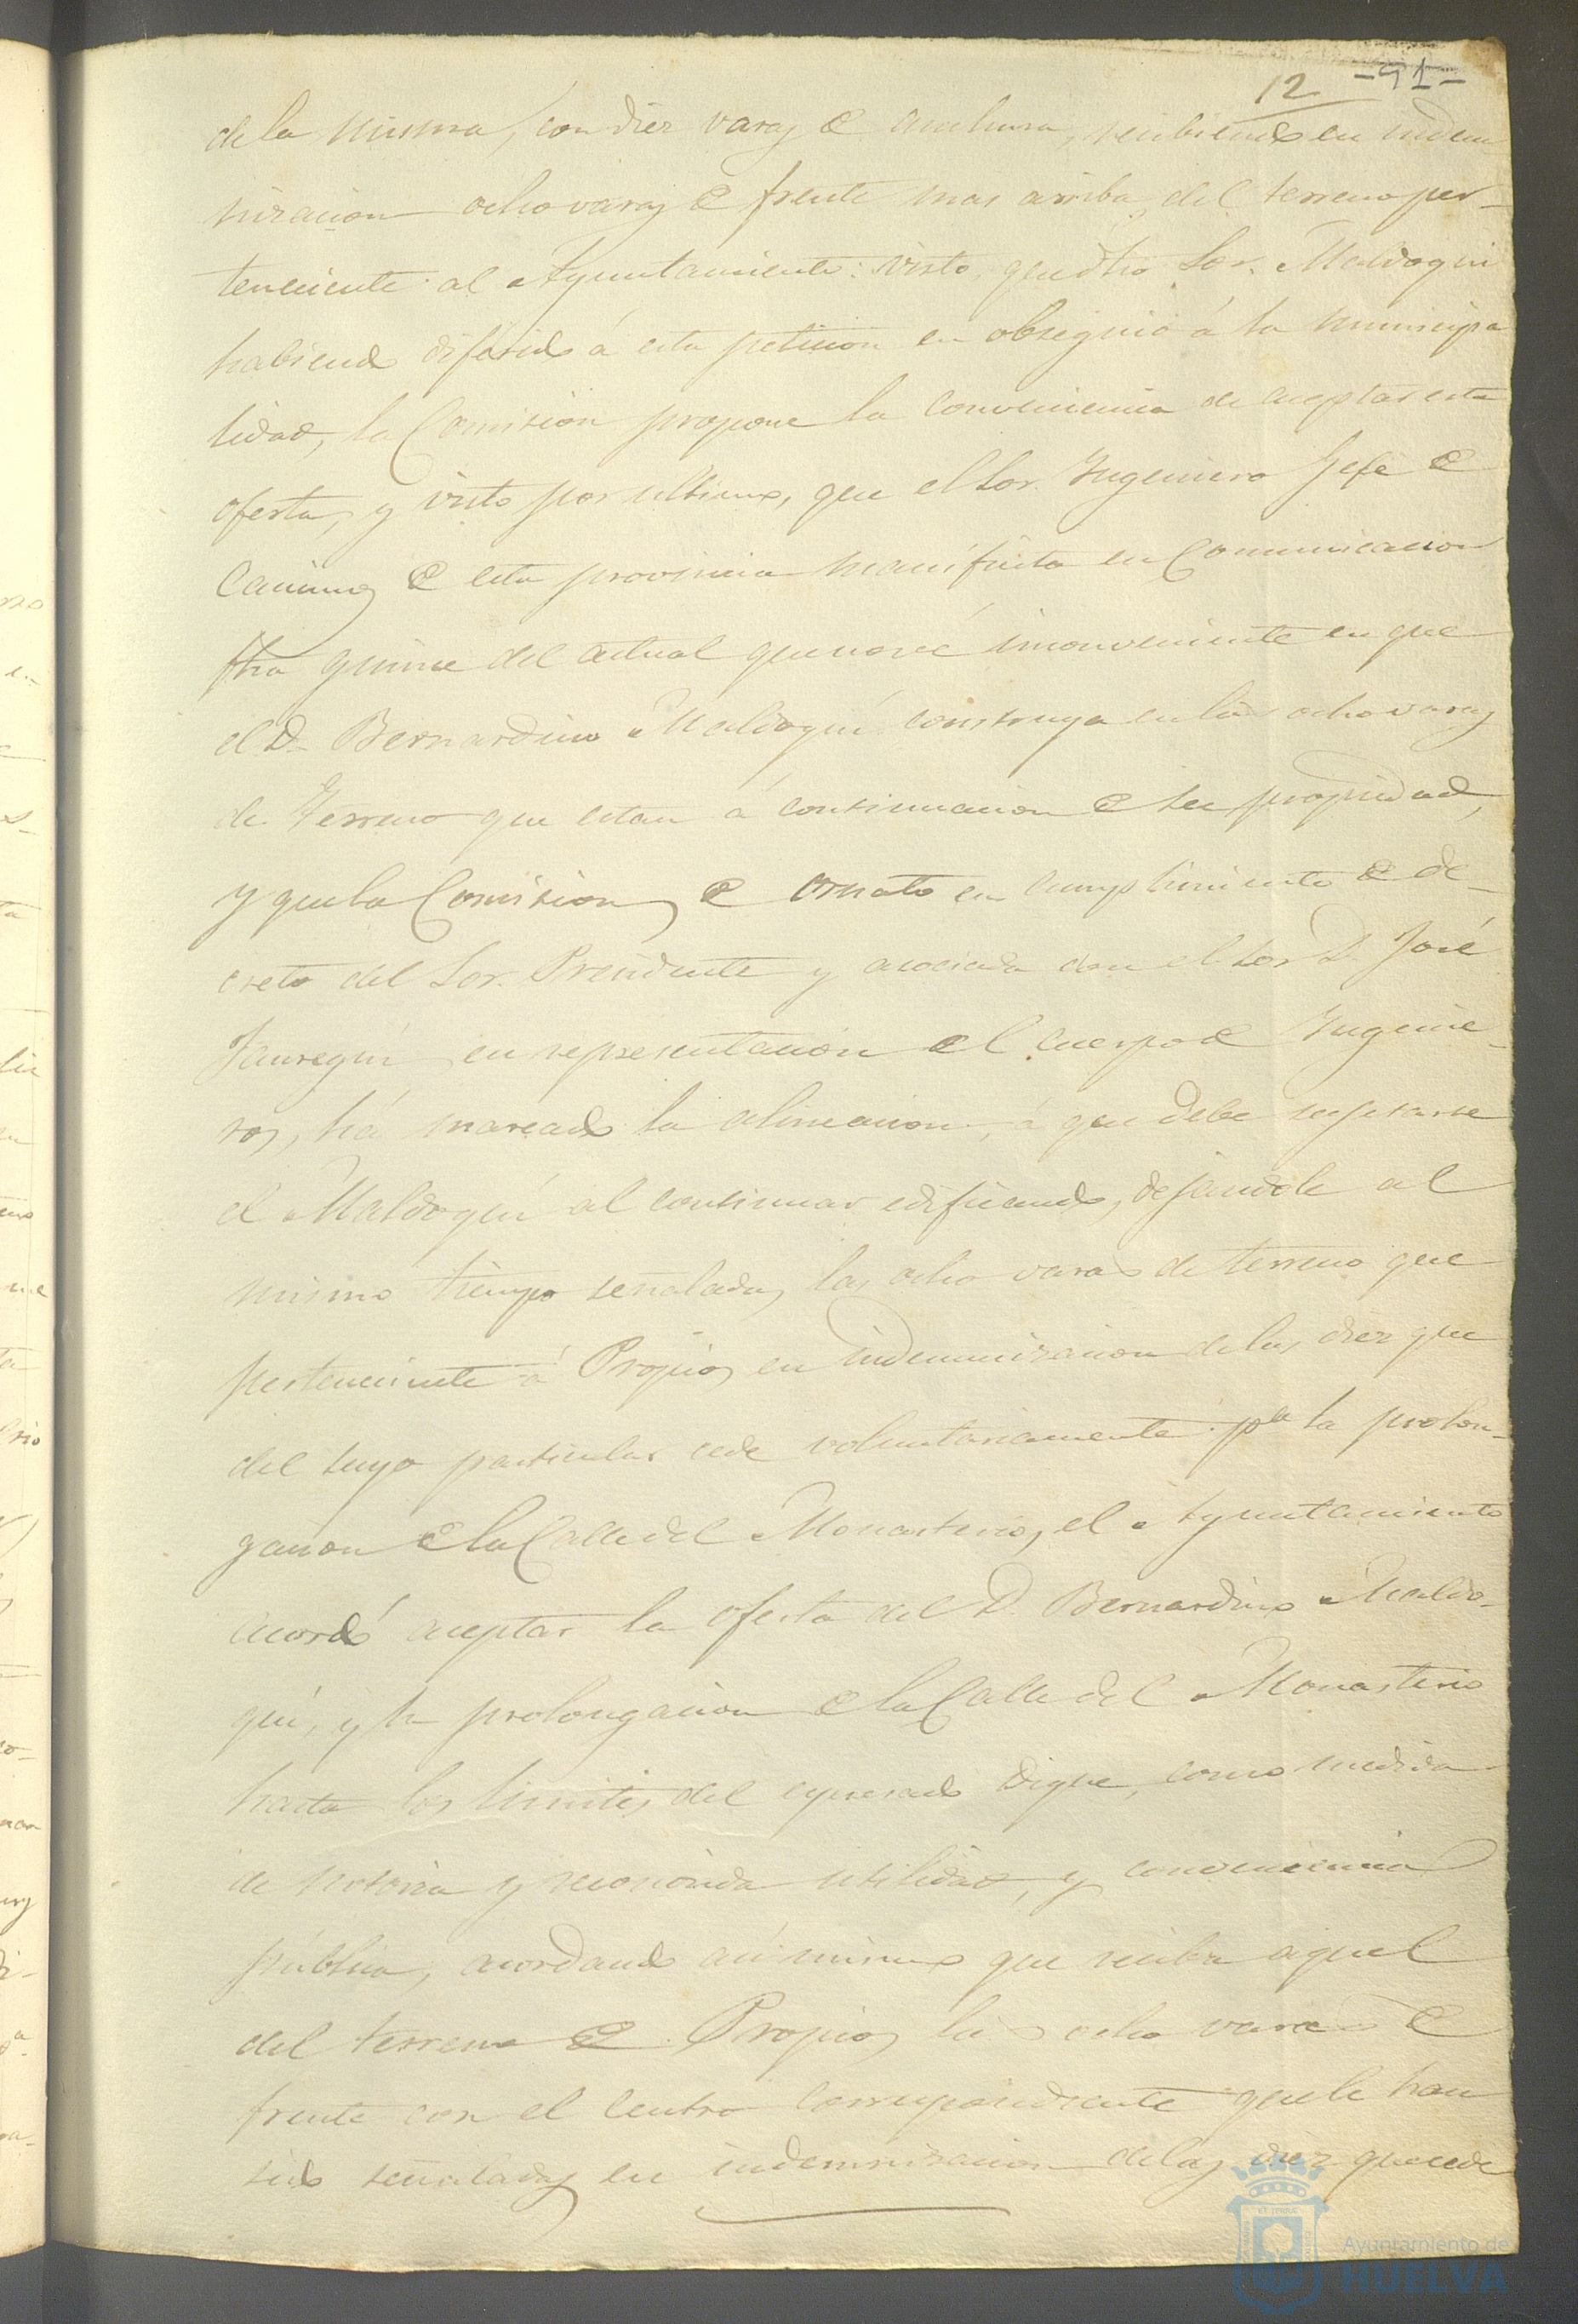 12 -91-
de la misma, con diez varas de anchura, recibiendo en indem
nizacion ocho varas de frente mas arriba, del terreno per-
teneciente al Ayuntamiento: visto que dho Sor. Maldoqui
habiendo diferido á esta peticion en obsequio á la municipa
lidad, la Comision propone la conveniencia de aceptar esta
oferta, y visto por ultimo, que el Sor. Ingeniero Jefe de
Caminos de esta provincia manifiesta en Comunicacion
fha quince del actual que no vé inconveniente en que
el D. Bernardino Maldoqui construya en las ocho varas
de Terreno que estan á continuacion de su propiedad,
y que la Comision de ornato en cumplimiento de de-
creto del Sor. Presidente y asociada con el Sor D. José
Jauregui en representacion del cuerpo de Ingenie-
ros, há marcado la alineacion, á que debe sugetarse
el Maldoqui al continuar edificando, dejandole al
mismo tiempo señaladas las ocho varas de terreno que
perteneciente á Propios en indemnizacion de las diez que
del suyo particular cede voluntariamente pa la prolon-
gacion de la Calle del Monasterio, el Ayuntamiento
acordó aceptar la oferta del D. Bernardino Maldo-
qui, y la prolongacion de la Calle del Monasterio
hasta los limites del espresado Dique, como medida
de notoria y reconocida utilidad, y conveniencia
pública, acordando asi mismo que reciba aquel
del terreno de Propios las ocho varas de
frente con el centro correspondiente que le han
sido señaladas en indemnizacion de las diez que cede
Ayuntamiento de
HUELVA